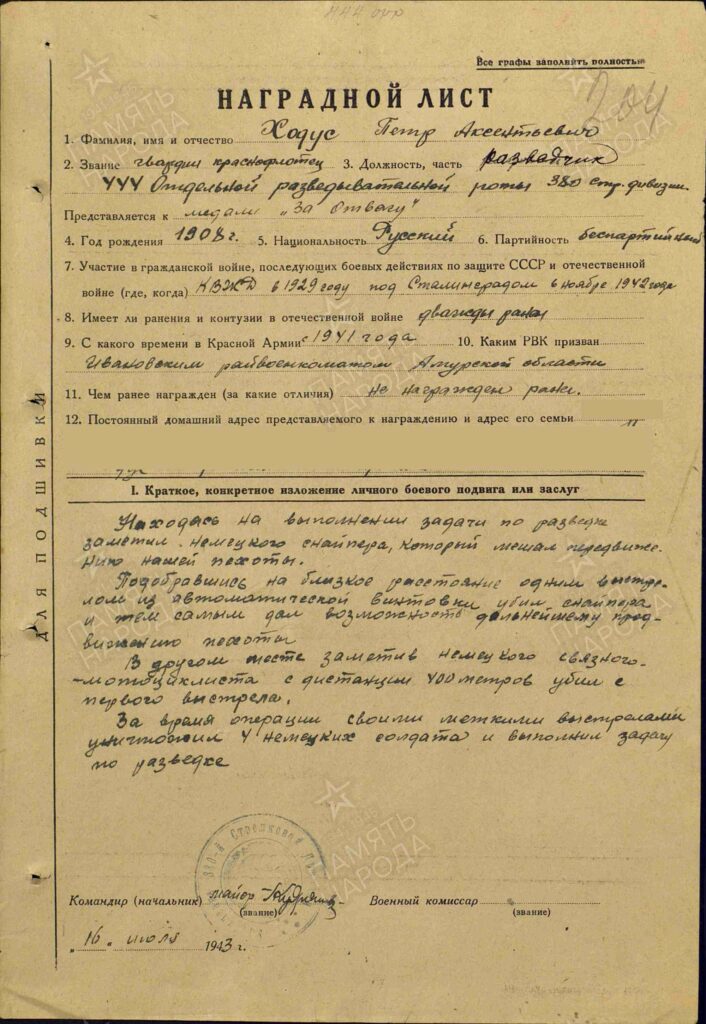 444 орр
Все графы заполнить полностью
704
НАГРАДНОЙ ЛИСТ
1. Фамилия, имя и отчество Ходус Петр Аксентьевич
2. Звание гвардии краснофлотец 3. Должность, часть разведчик
444 Отдельной разведывательной роты 380 стр. дивизии
Представляется к медали „За Отвагу"
4. Год рождения 1908 г. 5. Национальность Русский 6. Партийность беспартийный
7. Участие в гражданской войне, последующих боевых действиях по защите СССР и отечественной
войне (где, когда) КВЖД в 1929 году под Сталинградом в ноябре 1942 года
8. Имеет ли ранения и контузии в отечественной войне дважды ранен
9. С какого времени в Красной Армии с 1941 года 10. Каким РВК призван
Ивановским райвоенкоматом Амурской области
11. Чем ранее награжден (за какие отличия) не награжден ранее.
12. Постоянный домашний адрес представляемого к награждению и адрес его семьи
I. Краткое, конкретное изложение личного боевого подвига или заслуг
Находясь на выполнении задачи по разведке
заметил немецкого снайпера, который мешал передвиже-
нию нашей пехоты.
Подобравшись на близкое расстояние одним выстре-
лом из автоматической винтовки убил снайпера
и тем самым дал возможность дальнейшему прод-
вижению пехоты
В другом месте заметив немецкого связного-
-мотоциклиста с дистанции 400 метров убил с
первого выстрела.
За время операции своими меткими выстрелами
уничтожил 4 немецких солдата и выполнил задачу
по разведке
380-й Стрелковой
Командир (начальник) майор Военный комиссар
(звание) (звание)
„16" июля 1943 г.
ДЛЯ ПОДШИВКИ
ПАМЯТЬ НАРОДА